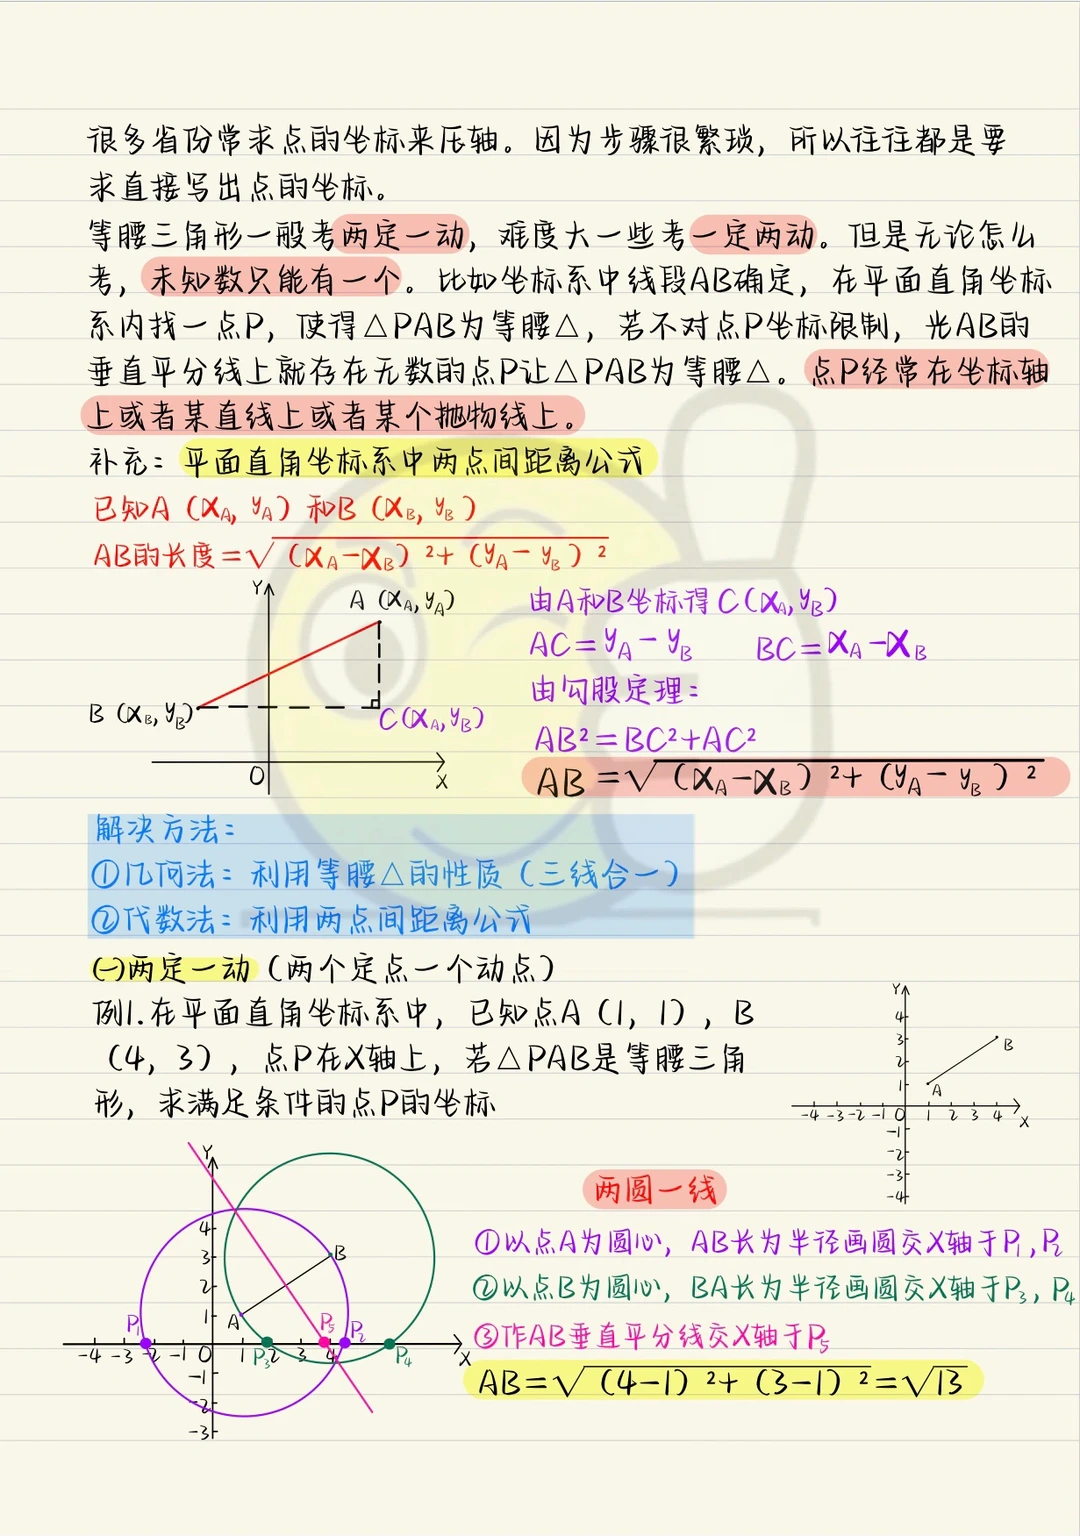 很多省份常求点的坐标来压轴。因为步骤很繁琐，所以往往都是要
求直接写出点的坐标。
等腰三角形一般考两定一动，难度大一些考一定两动。但是无论怎么
考，未知数只能有一个。比如坐标系中线段AB确定，在平面直角坐标
系内找一点P，使得△PAB为等腰△，若不对点P坐标限制，光AB的
垂直平分线上就存在无数的点P让△PAB为等腰△。点P经常在坐标轴
上或者某直线上或者某个抛物线上。
补充：平面直角坐标系中两点间距离公式
已知A（X_A, y_A）和B（X_B, y_B）
AB的长度=√(X_A-X_B)²+(y_A-y_B)²
Y
A (X_A, y_A)
B (X_B, y_B)
C(X_A, y_B)
O
X
由A和B坐标得C(X_A, y_B)
AC=y_A-y_B BC=X_A-X_B
由勾股定理：
AB²=BC²+AC²
AB=√(X_A-X_B)²+(y_A-y_B)²
解决方法：
①几何法：利用等腰△的性质（三线合一）
②代数法：利用两点间距离公式
(一)两定一动（两个定点一个动点）
例1.在平面直角坐标系中，已知点A（1，1），B
（4，3），点P在X轴上，若△PAB是等腰三角
形，求满足条件的点P的坐标
Y
4
3
B
2
1
A
-4 -3 -2 -1 0 1 2 3 4
X
-1
-2
-3
-4
Y
4
3
B
2
1
A
P₁
P₅
P₂
-4 -3 -2 -1 0 1 2 3 4
X
P₃
P₄
-1
-2
-3
两圆一线
①以点A为圆心，AB长为半径画圆交X轴于P₁, P₂
②以点B为圆心，BA长为半径画圆交X轴于P₃, P₄
③作AB垂直平分线交X轴于P₅
AB=√(4-1)²+(3-1)²=√13